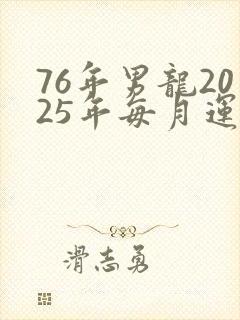 76年男龍20
25年每月運
滑志勇